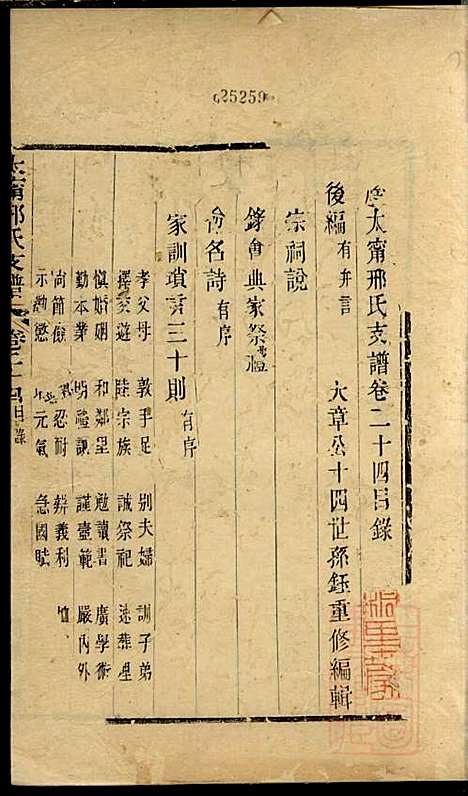 025259
太甯邢氏支譜卷二十四目錄
後編 有弁言 大章公十四世孫鈺重修編輯
宗祠說
錄會典家祭禮
命名詩 有序
家訓瑣言三十則 有序
孝父母 敦手足 別夫婦 訓子弟
擇交遊 睦宗族 誠祭祀 速葬埋
慎婚姻 和鄰里 勉讀書 廣學術
勤本業 明禮讓 謹臺範 嚴內外
尚節儉 忍耐 辨義利
示勸懲 元氣 急國賦
太甯邢氏支譜 卷二十四目錄